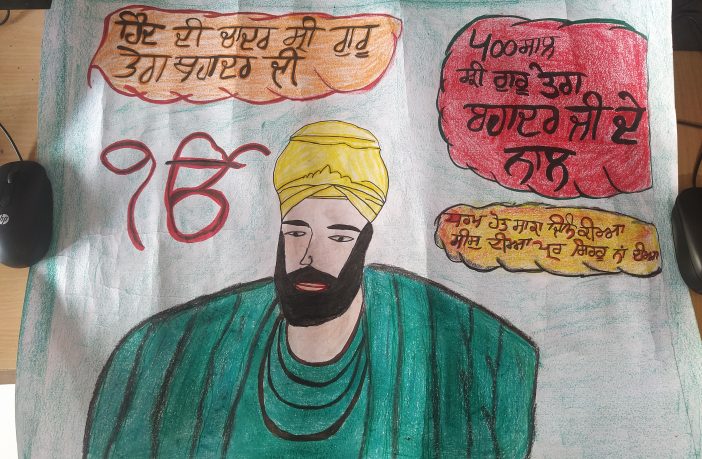 ਹਿੰਦ ਦੀ ਚਾਦਰ ਸ੍ਰੀ ਗੁਰੂ
ਤੇਗ ਬਹਾਦਰ ਜੀ
੫੦੦ਸਾਲ
ਸ੍ਰੀ ਗੁਰੂ ਤੇਗ
ਬਹਾਦਰ ਜੀ ਦੇ
ਨਾਲ
ੴ
ਧਰਮ ਹੇਤ ਸਾਕਾ ਜਿਨਿ ਕੀਆ
ਸੀਸ ਦੀਆ ਪਰ ਸਿਰਰੁ ਨਾ ਦੀਆ
hp